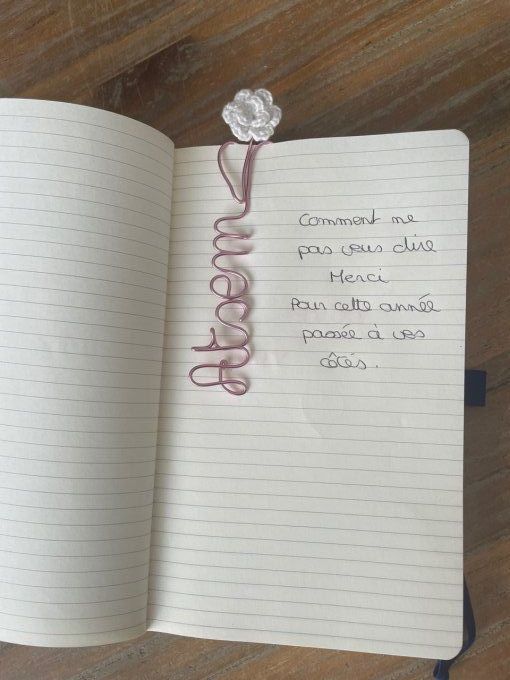 Comment ne
pas vous dire
Merci
Pour cette année
passée à vos
côtés.